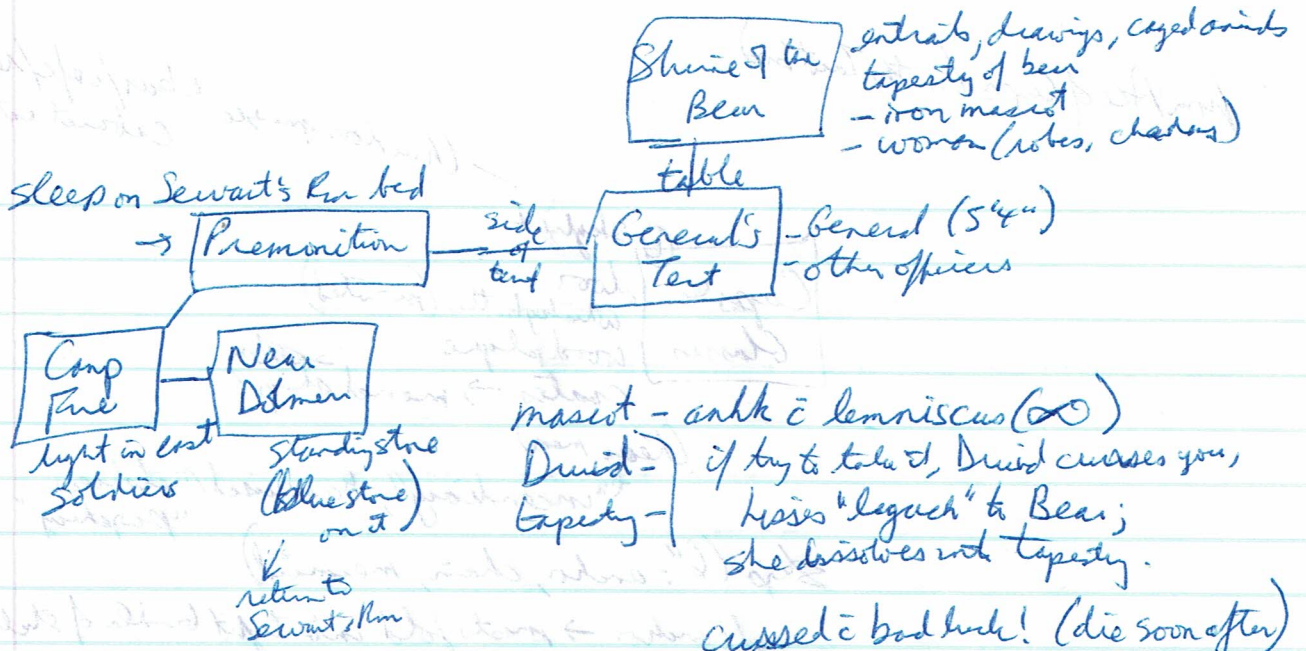 Shrine of the
Bear
entrails, drawings, caged animals
tapesty of bear
- iron mascot
- woman (robes, chadans)
table
sleep on Servant's Rm bed
→ Premonition
side
of
tent
General's
Tent
- General (5'4")
- other officers
Camp
Fire
light in east
soldiers
Near
Dolmen
standing stone
(blue stone
on it)
↓
return to
Servant's Rm
mascot - anhk c̄ lemniscus (∞)
Druid -
tapestry -
if try to take it, Druid curses you,
hisses "legach" to Bear;
she dissolves into tapestry.
cursed c̄ bad luck! (die soon after)